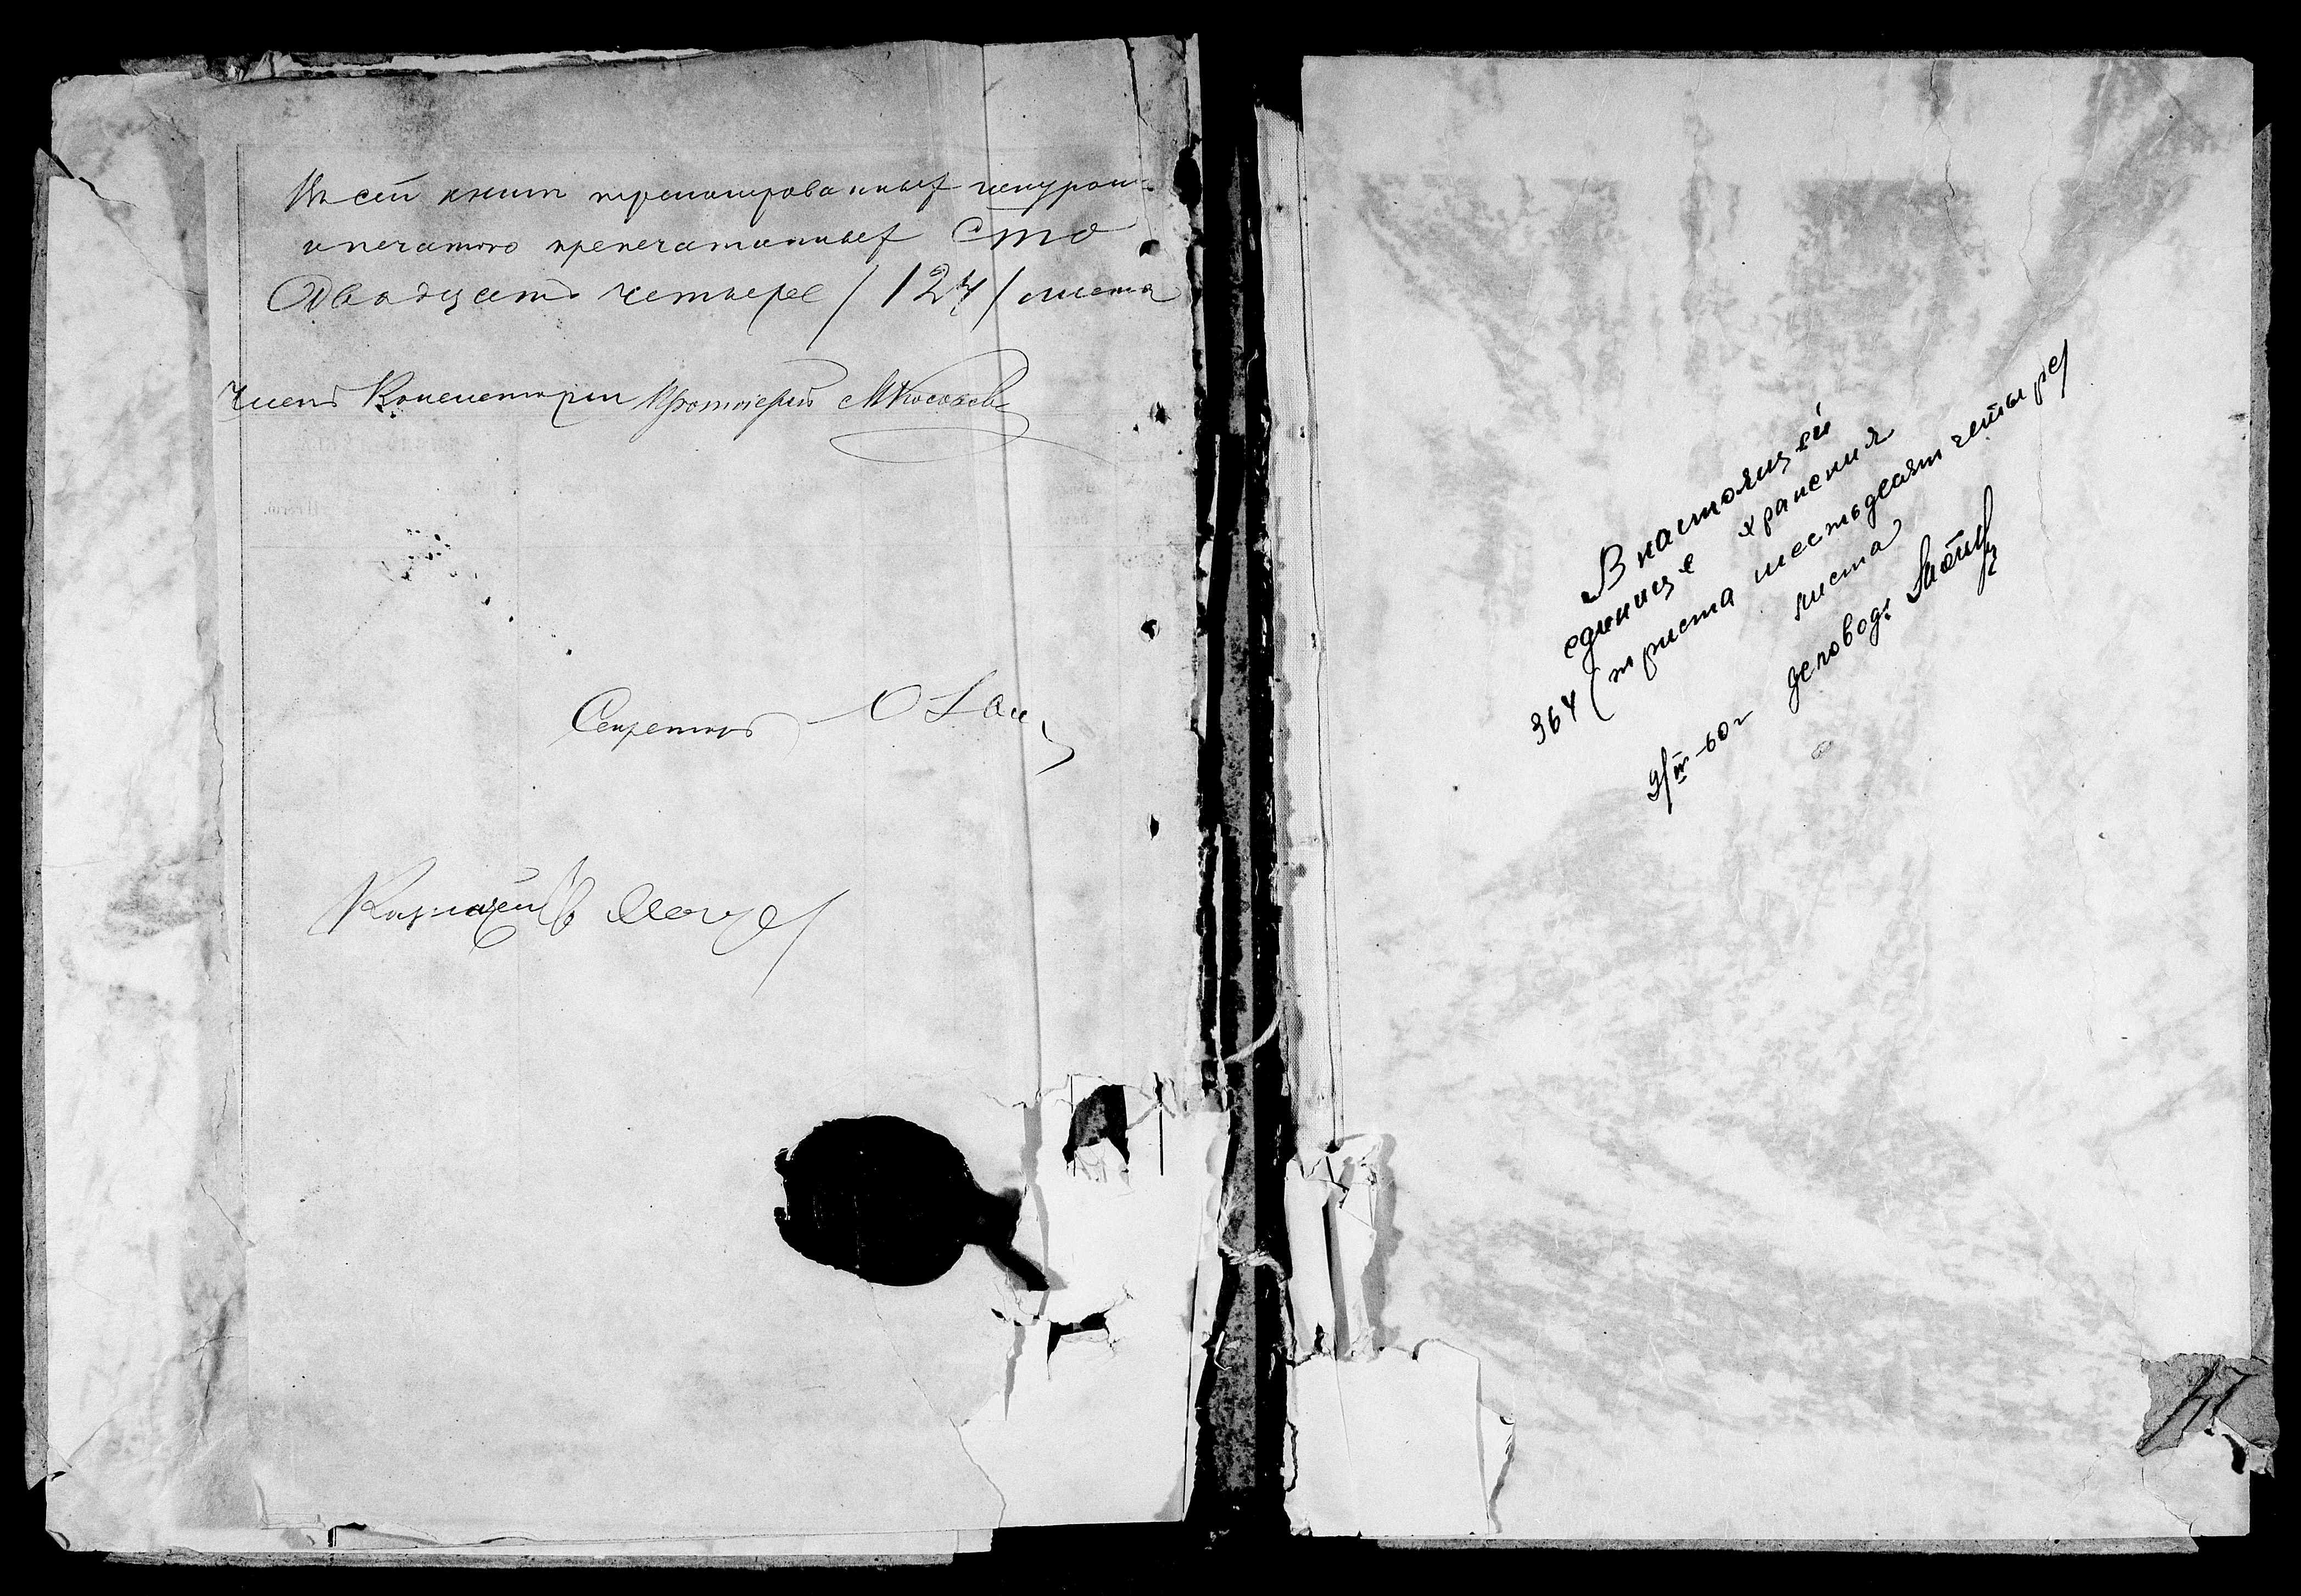 Въ сей книге нумерованныхъ шнуром
и печатью препечатанныхъ Сто
Двадцать четыре / 124 / листа
Членъ Консисторіи Протоіерей
Секретарь
Казначей
В настоящей
единице хранения
364 (триста шестьдесят четыре)
листа
9/IV-60 г деловод.